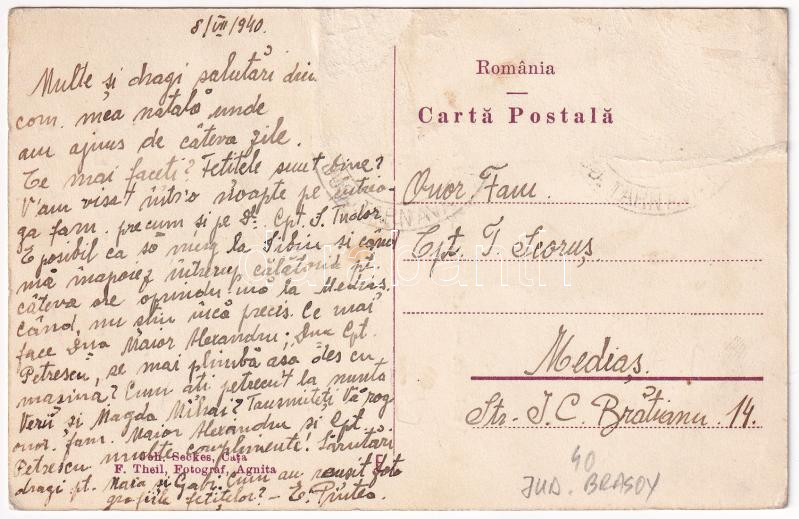 8/VII/940.
Multe și dragi salutări din
com. mea natală unde
am ajuns de câteva zile.
Ce mai faceți? Fetițele sunt bine?
V'am visat într'o noapte pe întrea-
ga fam. precum si pe Dl Cpt. S. Tudor.
E posibil ca să merg la Sibiu si când
mă înapoiez întrerup călătoria pt.
câteva ore oprindu-mă la Mediaș.
Când, nu stiu încă precis. Ce mai
face Dna Maior Alexandru; Dna Cpt.
Petrescu, se mai plimbă asa des cu
masina? Cum ati petrecut la nunta
și Magda Mihai? Transmiteți Vă rog
onor. fam. Maior Alexandru și Cpt.
Petrescu multe complimente! Sărutări
dragi pt. Maia si Gabi. Cum au reusit foto
grafiile fetițelor? - E. Pintea
Joh. Seckes, Cața
F. Theil, Fotograf, Agnita
România
Cartă Postală
Onor Fam.
Cpt. T. Scoruș
Mediaș.
Str. I. C. Brătianu 14.
40
JUD. BRASOV
darabanth